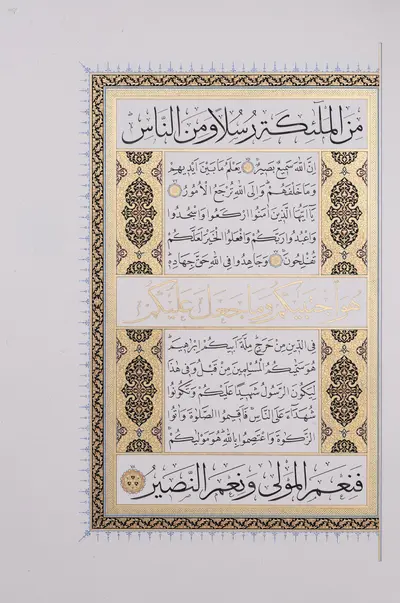 مِنَ الْمَلٰٓئِكَةِ رُسُلًا وَمِنَ النَّاسِ
اِنَّ اللّٰهَ سَمِيعٌ بَصِيرٌ يَعْلَمُ مَا بَيْنَ اَيْدِيهِمْ
وَمَا خَلْفَهُمْ وَاِلَى اللّٰهِ تُرْجَعُ الْاُمُورُ
يَٓا اَيُّهَا الَّذِينَ اٰمَنُوا ارْكَعُوا وَاسْجُدُوا
وَاعْبُدُوا رَبَّكُمْ وَافْعَلُوا الْخَيْرَ لَعَلَّكُمْ
تُفْلِحُونَ وَجَاهِدُوا فِي اللّٰهِ حَقَّ جِهَادِهِ
هُوَ اجْتَبٰيكُمْ وَمَا جَعَلَ عَلَيْكُمْ
فِي الدِّينِ مِنْ حَرَجٍ مِلَّةَ اَبِيكُمْ اِبْرٰهِيمَ
هُوَ سَمّٰيكُمُ الْمُسْلِمِينَ مِنْ قَبْلُ وَفِي هٰذَا
لِيَكُونَ الرَّسُولُ شَهِيدًا عَلَيْكُمْ وَتَكُونُوا
شُهَدَٓاءَ عَلَى النَّاسِ فَاَقِيمُوا الصَّلٰوةَ وَاٰتُوا
الزَّكٰوةَ وَاعْتَصِمُوا بِاللّٰهِ هُوَ مَوْلٰيكُمْ
فَنِعْمَ الْمَوْلٰى وَنِعْمَ النَّصِيرُ